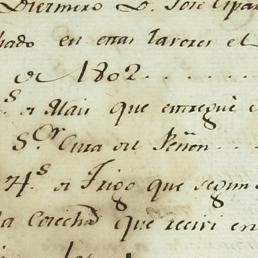 Diezmero D. José Apar
hado en estas labores el
de 1802
s de Mais que entregue e
Sor. Cura del Peñon
4s de Trigo que segun
la Cosecha que recivi en